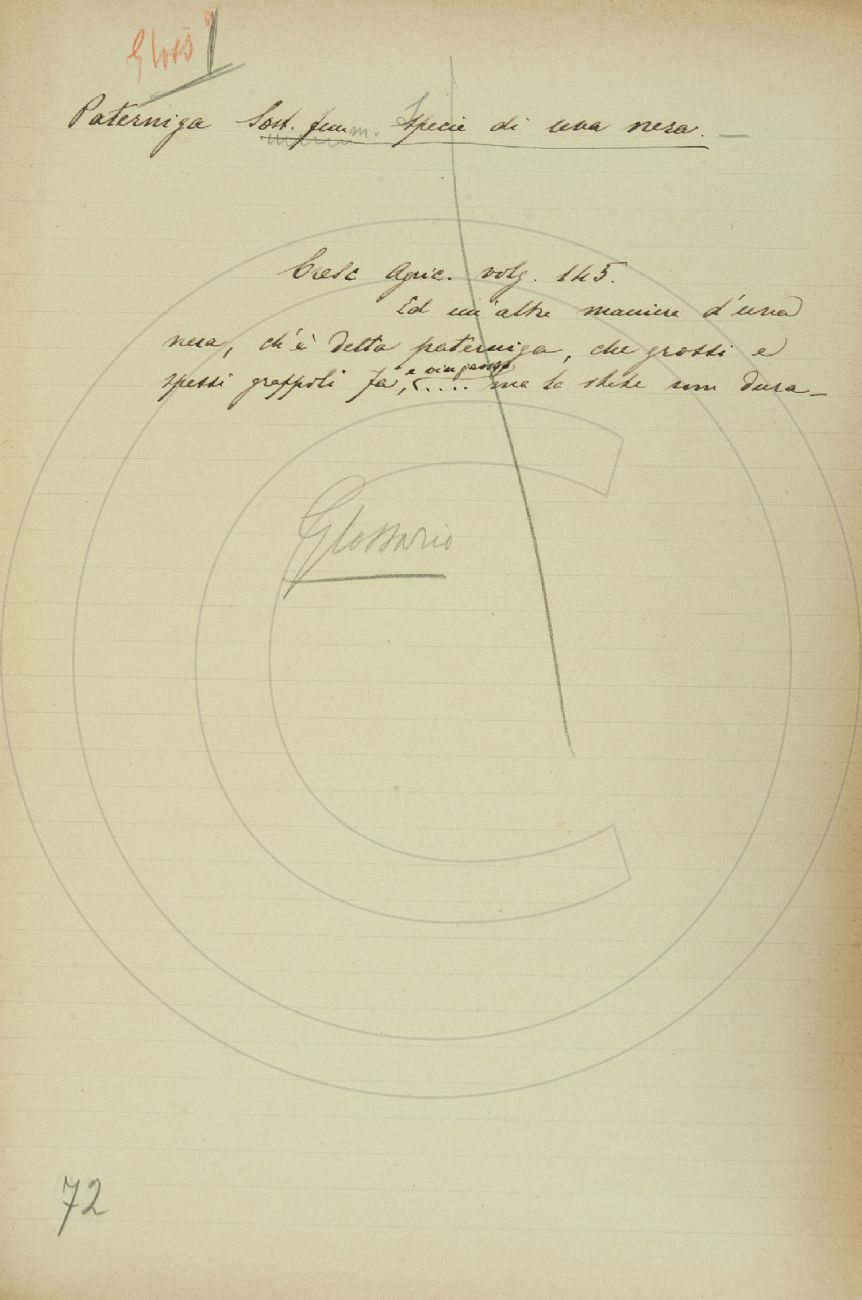 Gloss
Paterniga Sost. fem. Specie di uva nera.
Cresc Agric. volg. 145.
Ed un'altra maniera d'uva
nera, ch'è detta paterniga, che grossi e
e vin grosso
spessi grappoli fa, .... ma la state non dura_
Glossario
72